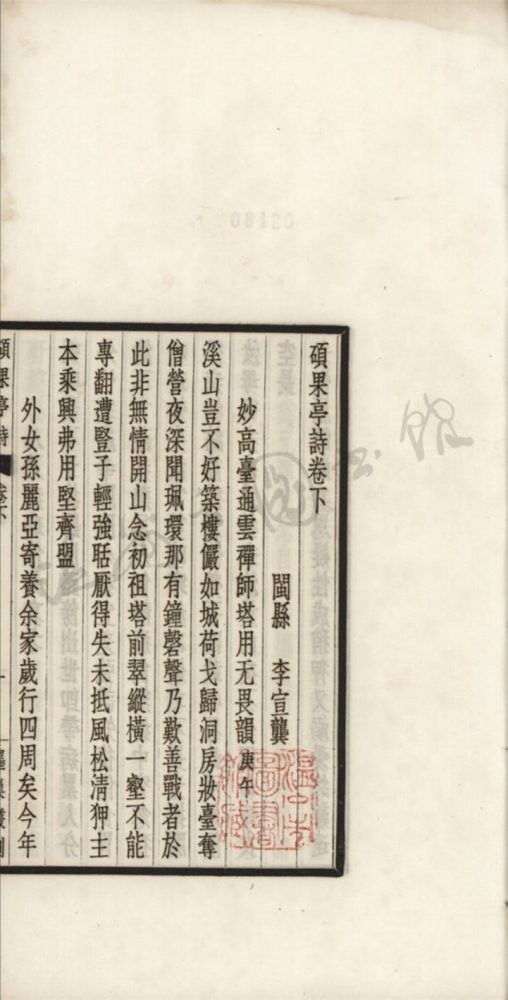 碩果亭詩卷下
閩縣　李宣龔
妙高臺通雲禪師塔用无畏韻庚午
溪山豈不好築樓儼如城荷戈歸洞房妝臺奪
僧營夜深聞珮環那有鐘磬聲乃歎善戰者於
此非無情開山念初祖塔前翠縱橫一壑不能
專翻遭豎子輕強聒厭得失未抵風松清狎主
本乘興弗用堅齊盟
外女孫麗亞寄養余家歲行四周矣今年
碩果亭詩
卷下
一